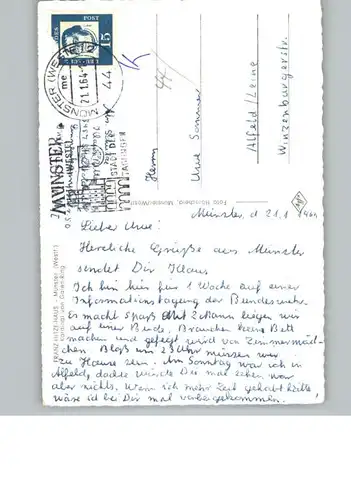 DEUTSCHE BUNDESPOST
15
MÜNSTER (WESTF)
21.1.64
me
44
MÜNSTER
STADT DER
TAGUNGEN
44
Herrn
Uwe Sommer
Alfeld/Leine
Winzenburgerstr.
FRANZ HITZE HAUS - Münster (Westf.)
Kardinal-von-Galen-Ring
Münster, d. 21.1.1964
Lieber Uwe!
Herzliche Grüße aus Münster
sendet Dir Klaus
Ich bin hier für 1 Woche auf einer
Informationstagung der Bundeswehr.
Er macht Spaß. Mit 2 Mann liegen wir
auf einer Bude. Brauchen keine Bett
machen und gefegt wird von Zimmermäd-
chen. Bloß um 23 Uhr müssen wir
zu Hause sein. Am Sonntag war ich in
Alfeld, dachte würde Dich mal sehen, war
aber nichts. Wenn ich mehr Zeit gehabt hätte
wäre ich bei Dir mal vorbeigekommen.